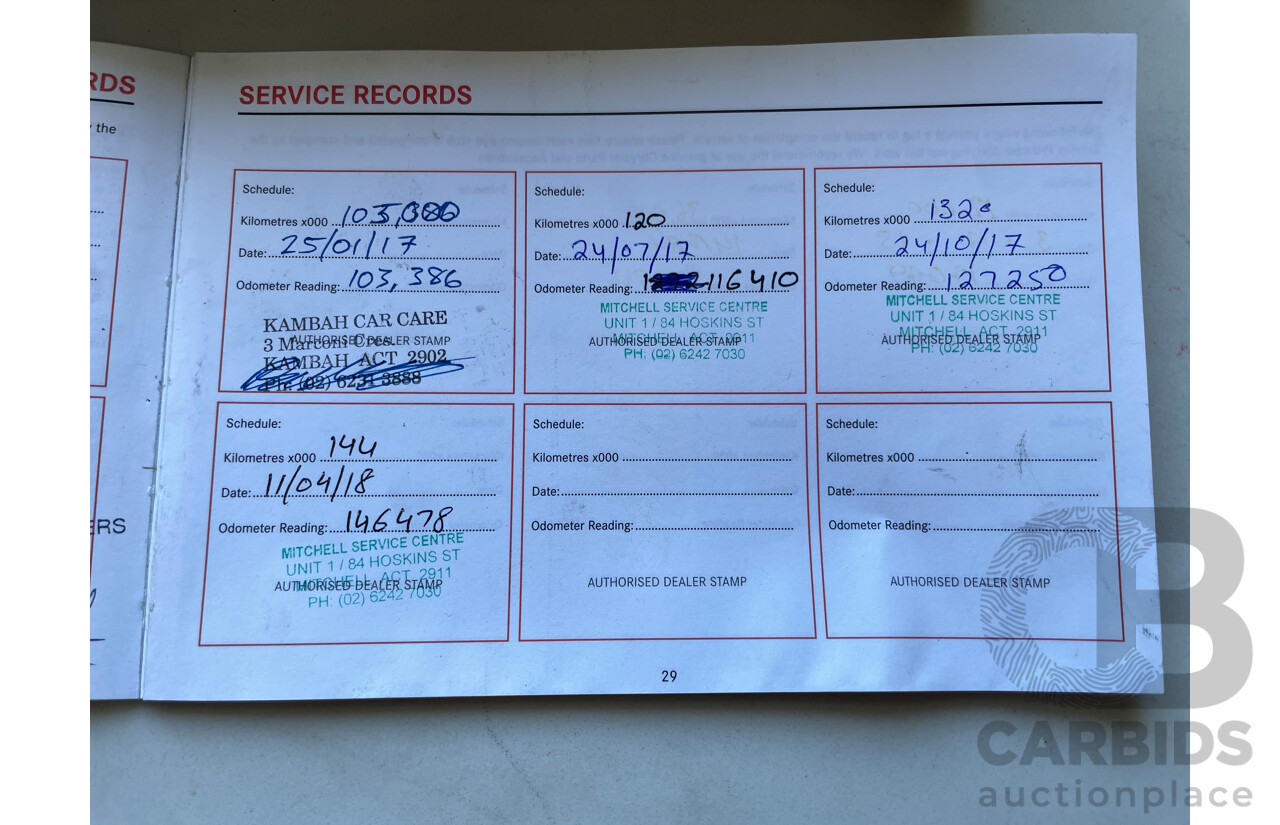 RDS
SERVICE RECORDS
the
Schedule:
Kilometres x000 103,000
Date: 25/01/17
Odometer Reading: 103,386
KAMBAH CAR CARE
3 Marconi Cres.
AUTHORISED DEALER STAMP
KAMBAH ACT 2902
Ph: (02) 6231 3888
Schedule:
Kilometres x000 120
Date: 24/07/17
Odometer Reading: 116410
MITCHELL SERVICE CENTRE
UNIT 1 / 84 HOSKINS ST
MITCHELL ACT 2911
AUTHORISED DEALER STAMP
PH: (02) 6242 7030
Schedule:
Kilometres x000 132
Date: 24/10/17
Odometer Reading: 127250
MITCHELL SERVICE CENTRE
UNIT 1 / 84 HOSKINS ST
MITCHELL ACT 2911
AUTHORISED DEALER STAMP
PH: (02) 6242 7030
Schedule:
Kilometres x000 144
Date: 11/04/18
Odometer Reading: 146478
MITCHELL SERVICE CENTRE
UNIT 1 / 84 HOSKINS ST
MITCHELL ACT 2911
AUTHORISED DEALER STAMP
PH: (02) 6242 7030
Schedule:
Kilometres x000
Date:
Odometer Reading:
AUTHORISED DEALER STAMP
Schedule:
Kilometres x000
Date:
Odometer Reading:
AUTHORISED DEALER STAMP
ERS
29
CB
CARBIDS
auctionplace